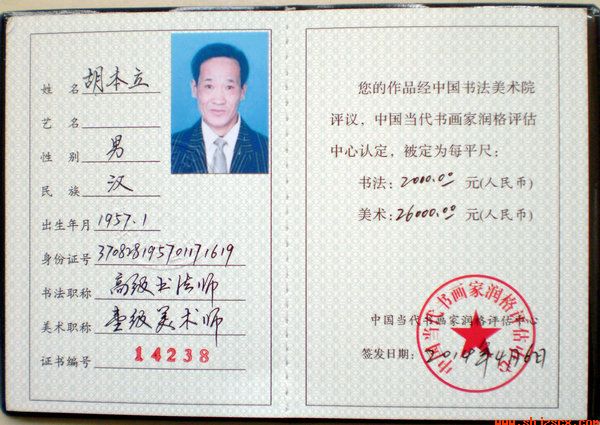 姓名 胡本立
艺名
性别 男
民族 汉
出生年月 1957.1
身份证号 370828195701171619
书法职称 高级书法师
美术职称 壹级美术师
证书编号 14238
您的作品经中国书法美术院
评议，中国当代书画家润格评估
中心认定，被定为每平尺：
书法：2000.00 元(人民币)
美术：26000.00 元(人民币)
中国当代书画家润格评估中心
中国当代书画家润格评估中心
签发日期：2014年4月6日